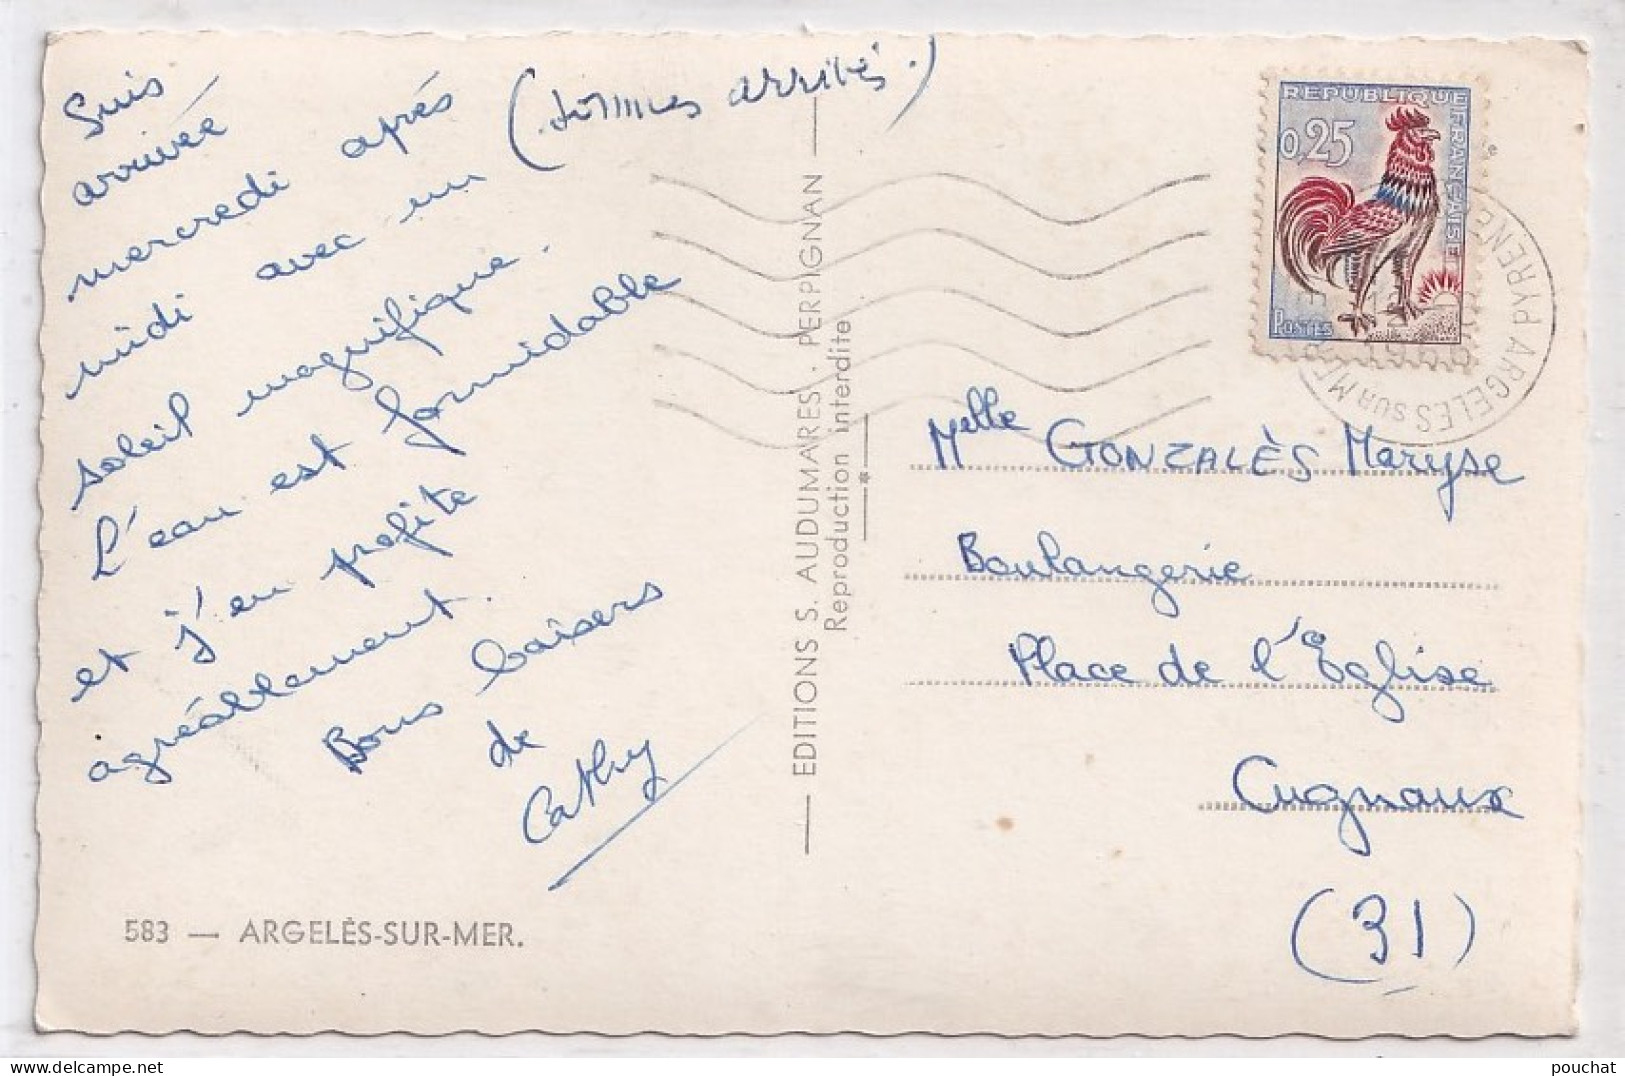 Suis
arrivée
mercredi après (sommes arrivés.)
midi avec un
soleil magnifique.
L'eau est formidable
et j'en profite
agréablement.
Bons baisers
de
Cathy
583 — ARGELÈS-SUR-MER.
EDITIONS S. AUDUMARES. PERPIGNAN
Reproduction interdite
REPUBLIQUE FRANÇAISE
0,25
POSTES
ARGELES SUR MER
Pd PYRENE
Melle GONZALÈS Maryse
Boulangerie
Place de l'Église
Cugnaux
(31)
pouchat